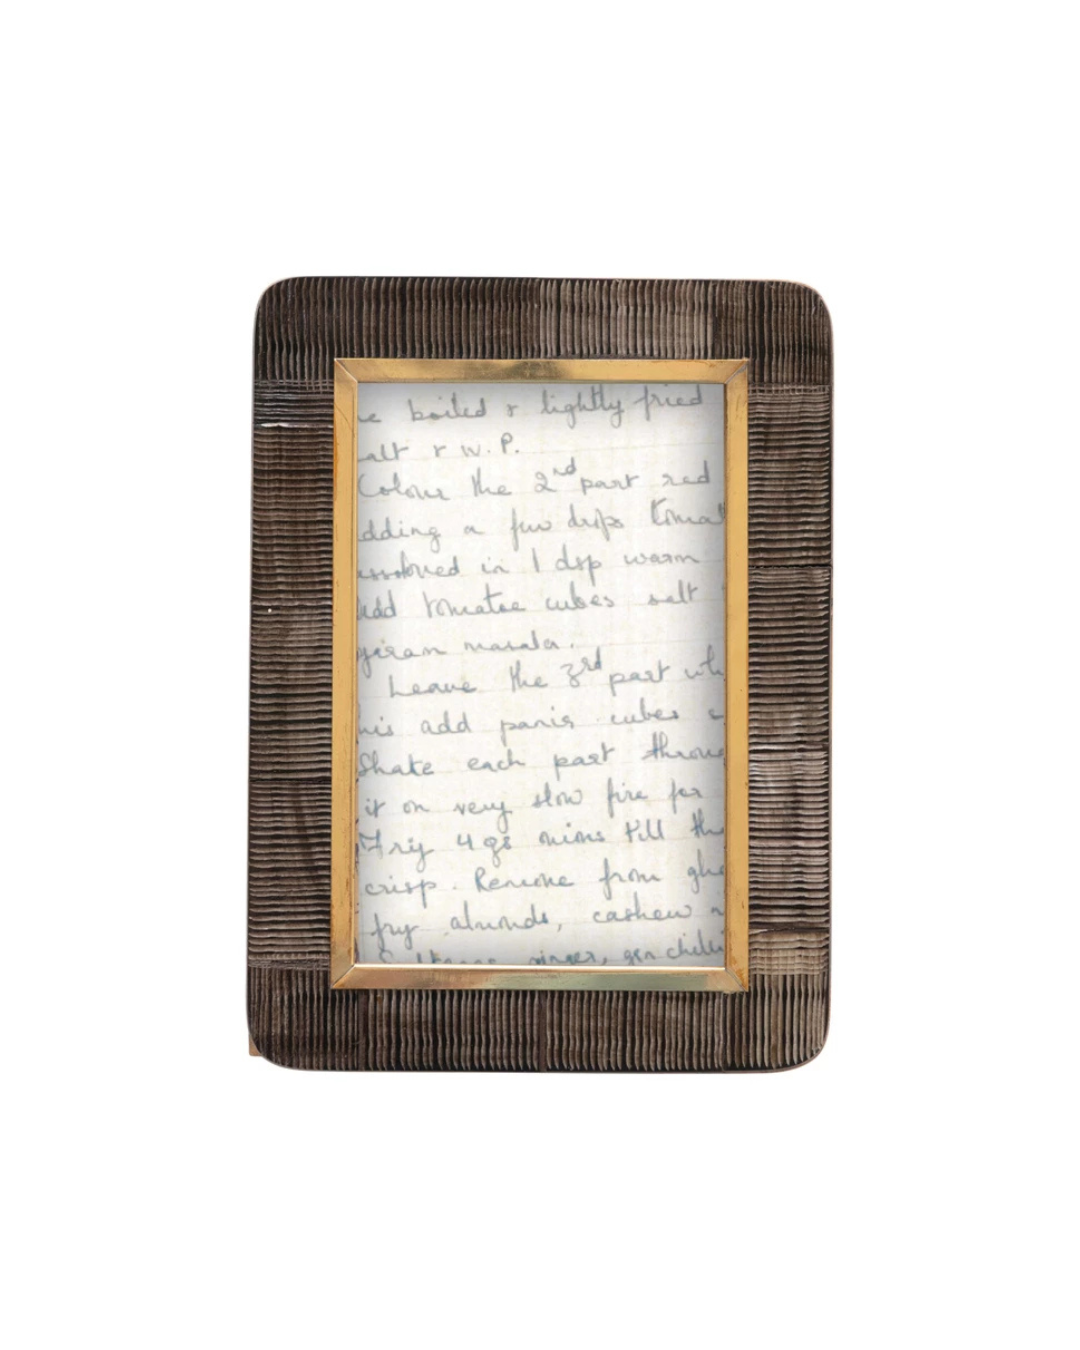 e boiled & lightly fried
alt & W.P.
Colour the 2nd part red
dding a few drops tomat
in 1 dsp warm
add tomatoe cubes salt
garam masala.
Leave the 3rd part whi
his add panir cubes
Shake each part throu
it on very slow fire for
Fry 4 gs mins till the
crisp. Remove from ghe
fry almonds, cashew n
ginger, grn chilli